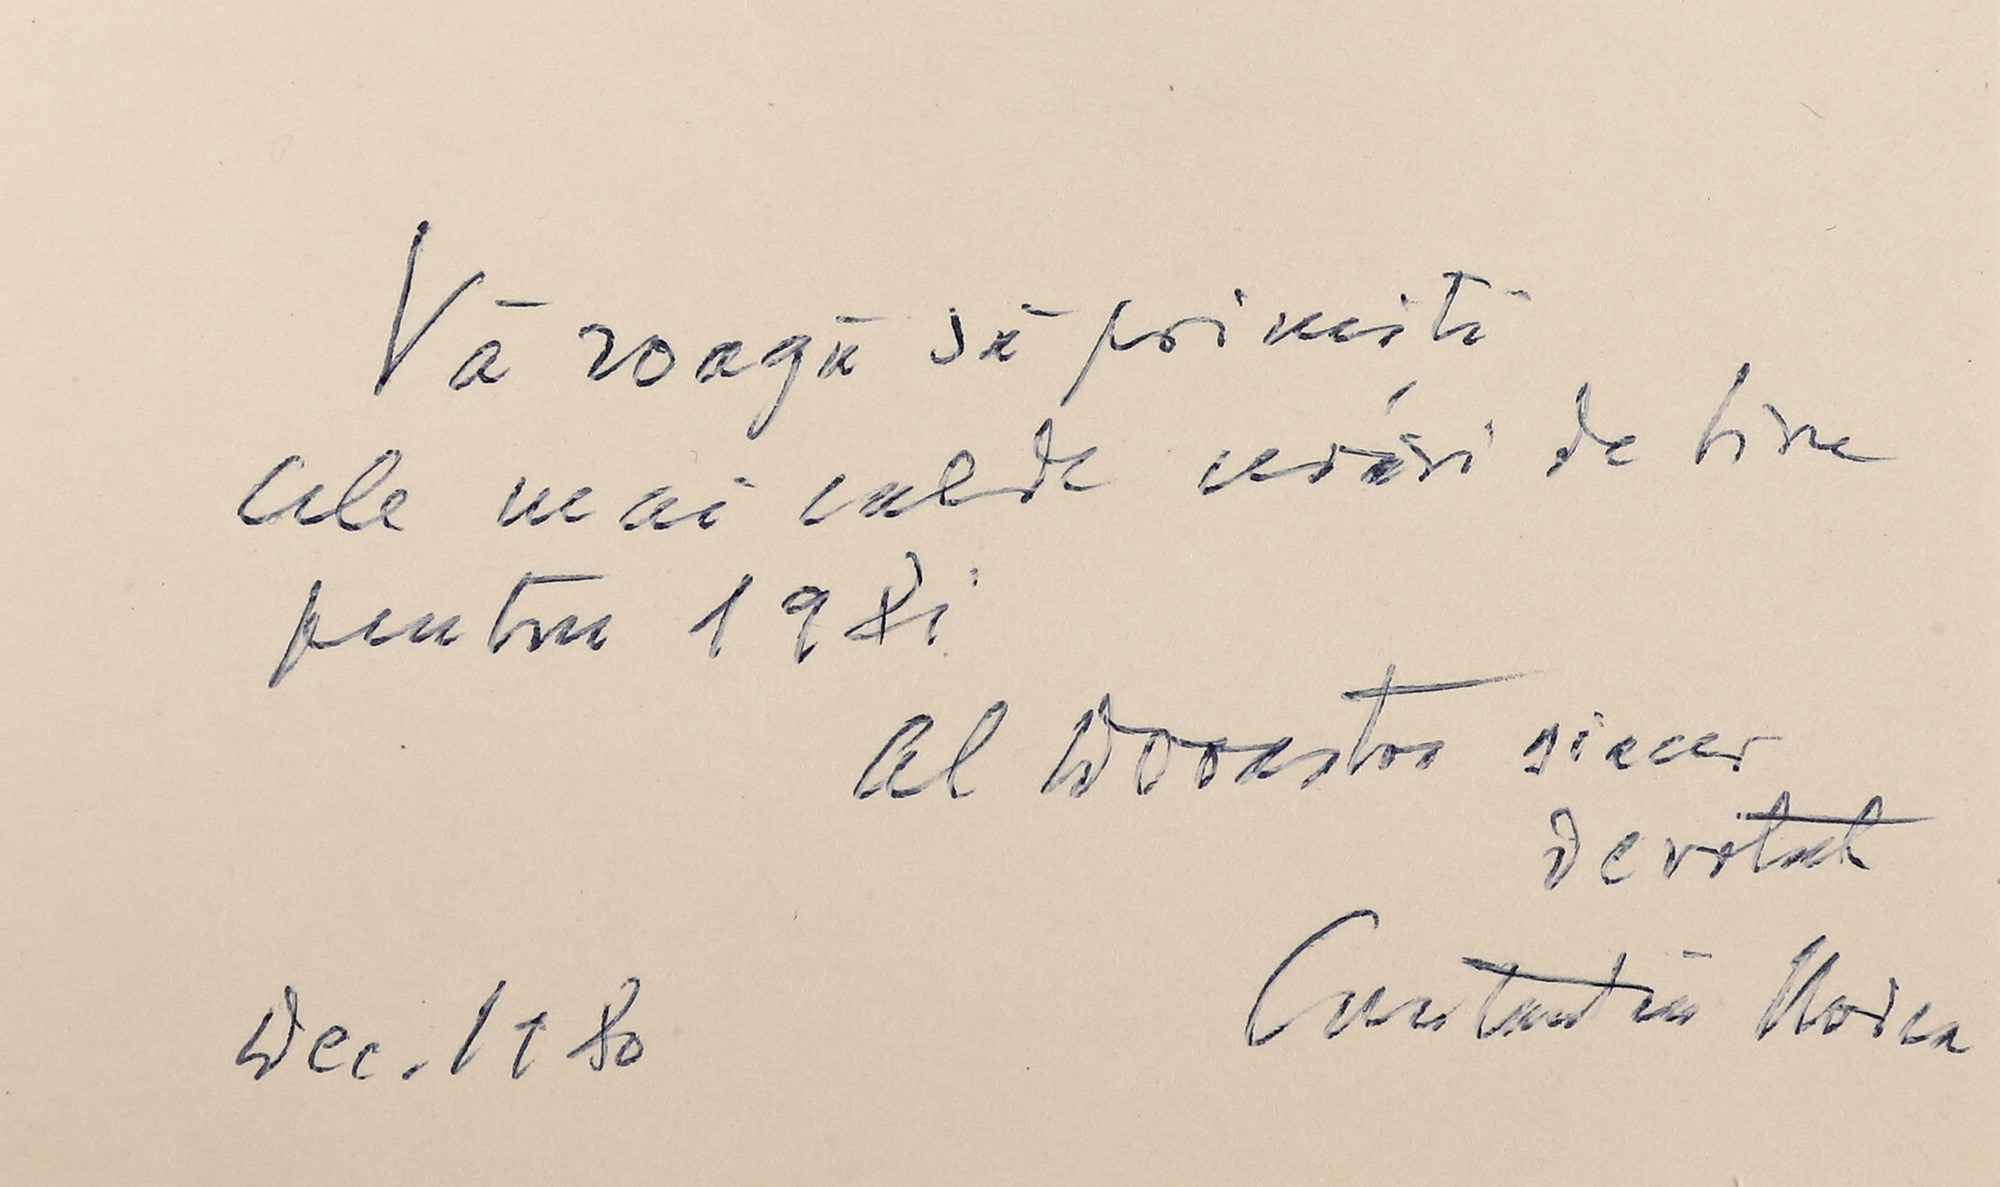 Vă roagă să primiți
cele mai calde urări de bine
pentru 1981
al Dvoastră sincer
devotat
Constantin Noica
Dec. 1980